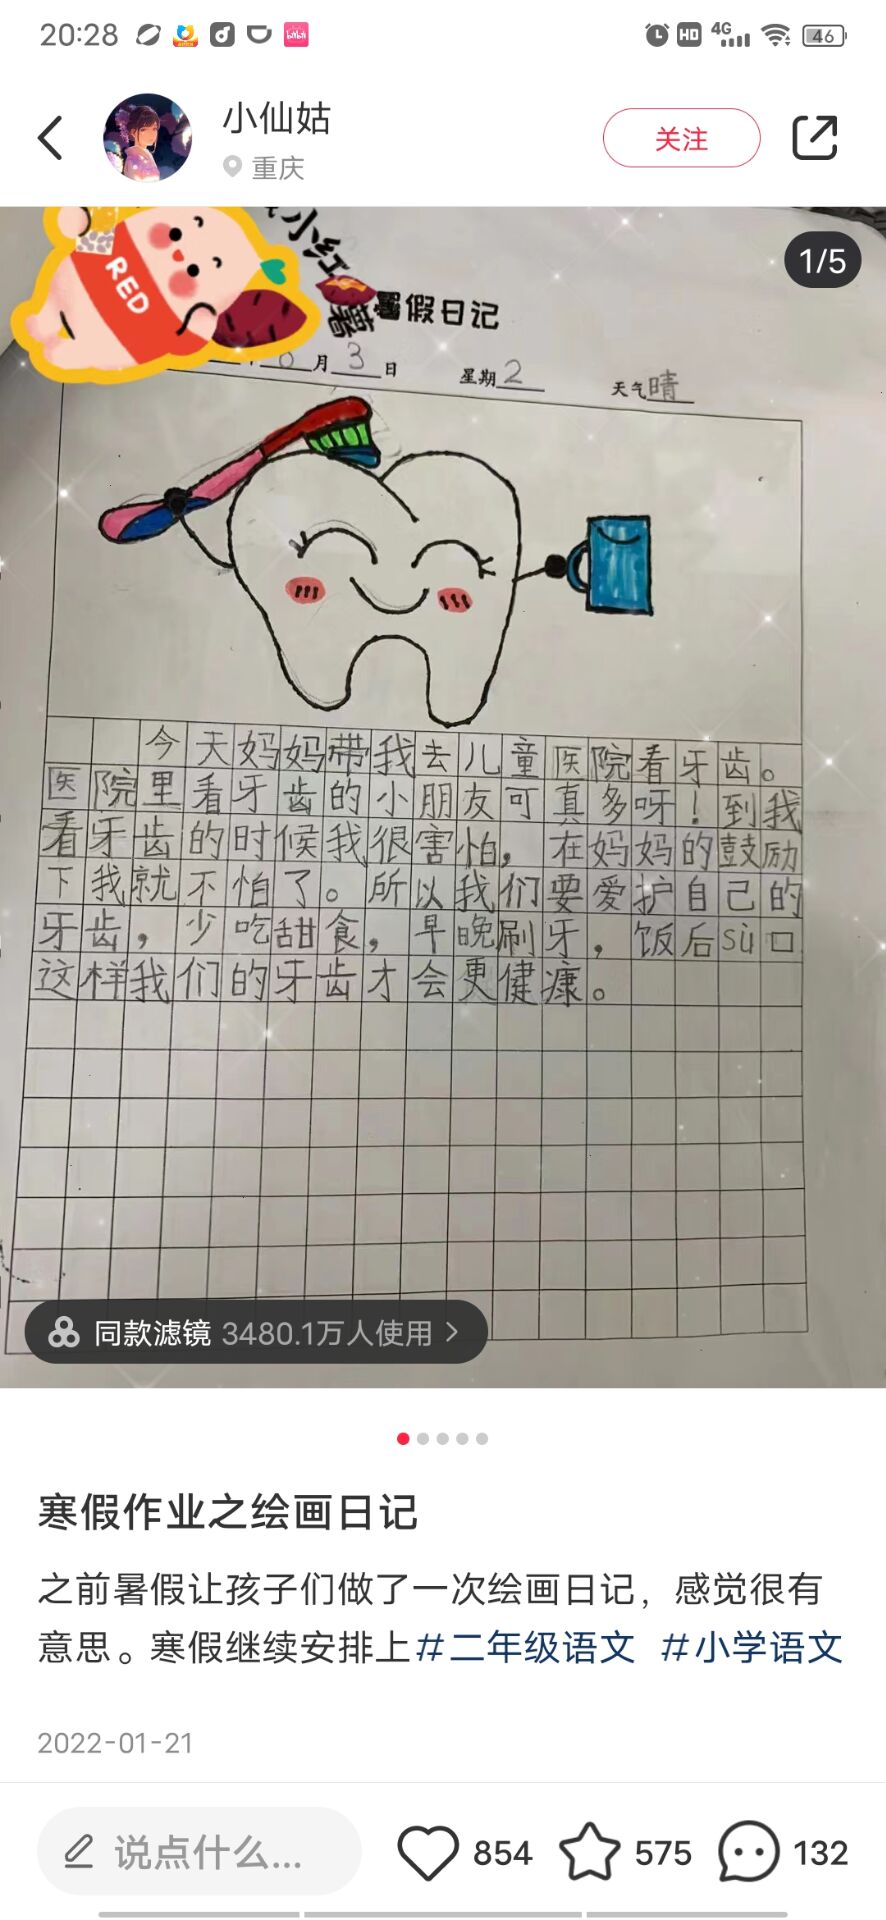 20:28
HD 4G 46
小仙姑
重庆
关注
1/5
RED
小红薯
暑假日记
月3日 星期2 天气晴
今天妈妈带我去儿童医院看牙齿。
医院里看牙齿的小朋友可真多呀！到我
看牙齿的时候我很害怕，在妈妈的鼓励
下我就不怕了。所以我们要爱护自己的
牙齿，少吃甜食，早晚刷牙，饭后sù口
这样我们的牙齿才会更健康。
同款滤镜 3480.1万人使用 >
寒假作业之绘画日记
之前暑假让孩子们做了一次绘画日记，感觉很有
意思。寒假继续安排上#二年级语文 #小学语文
2022-01-21
说点什么... 854 575 132